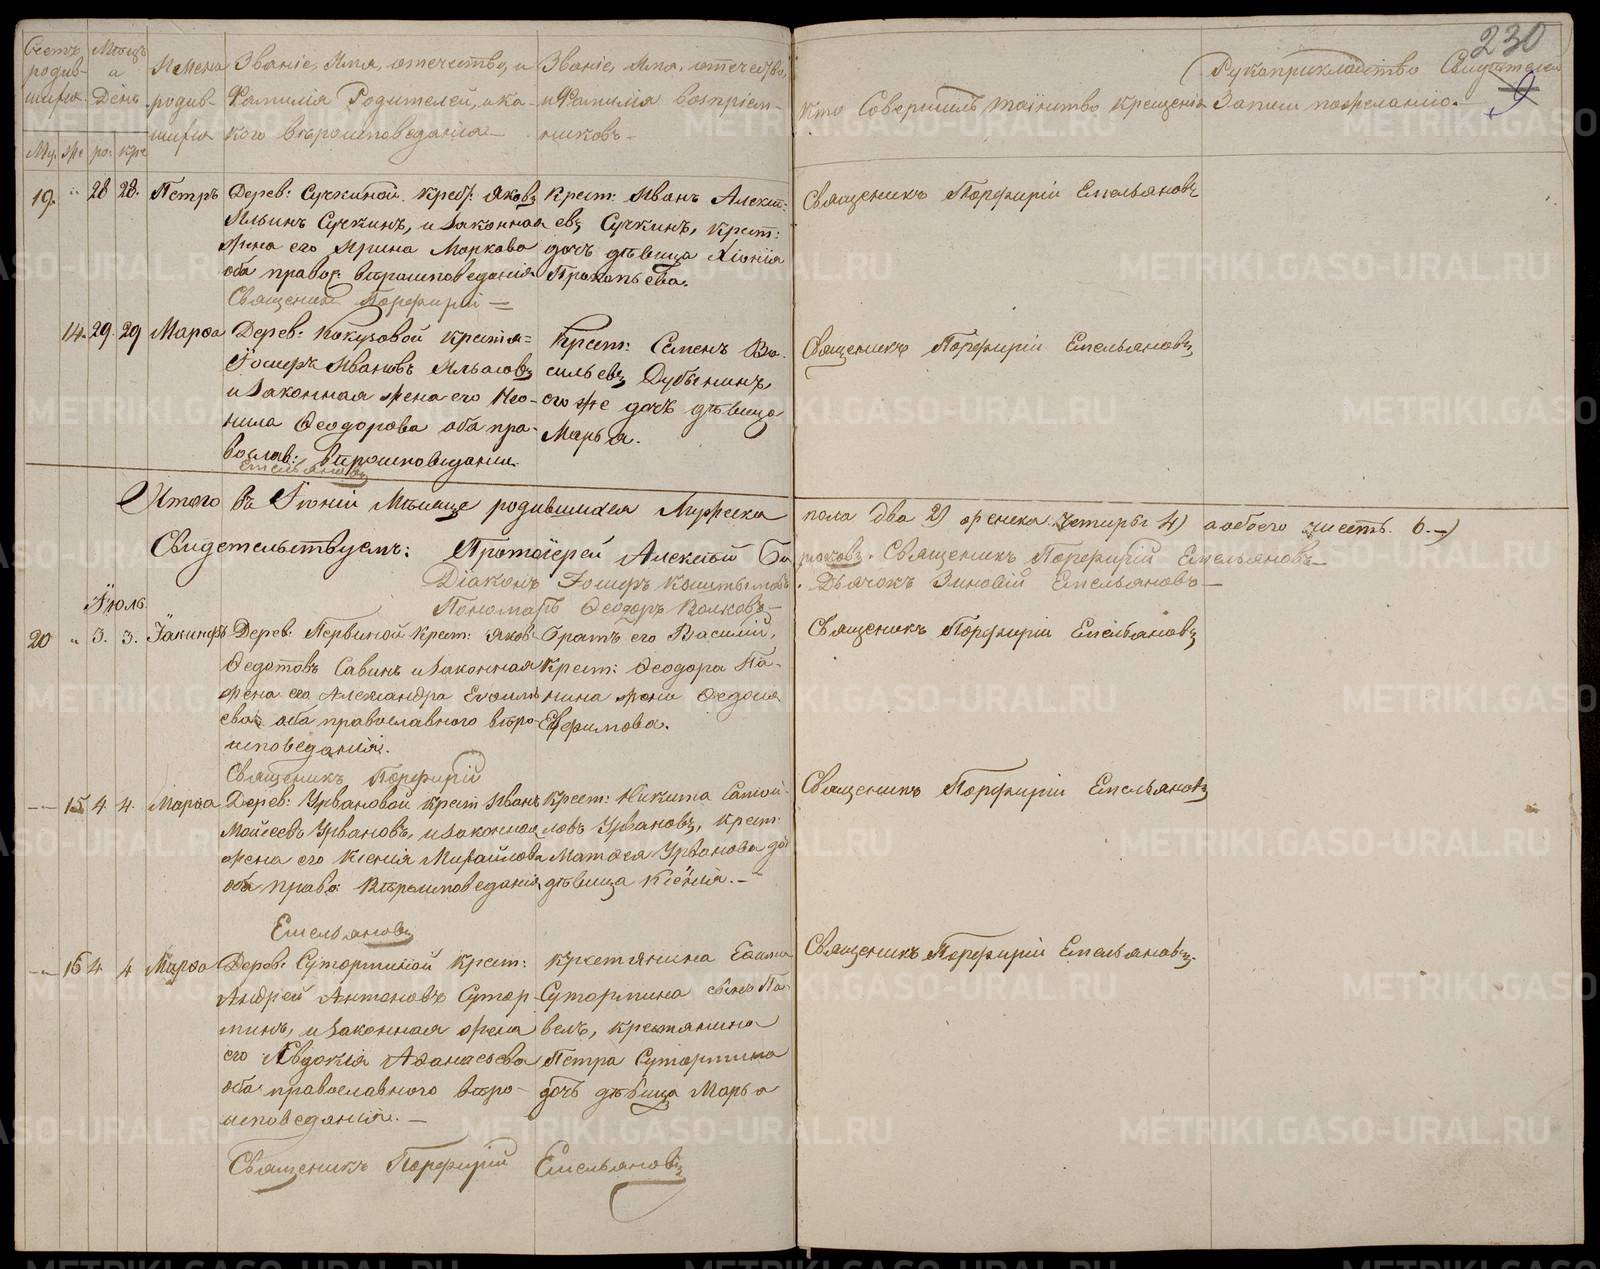 230
Счетъ родив-шихся
Мѣсяцъ и День
Имена родив-шихся
Званіе, Имя, отечество, и Фамилія Родителей, и ка-кого вѣроисповеданія
Званіе, Имя, отечество, и Фамилія воспріем-никовъ
Кто Совершилъ таинство крещенія
Рукоприкладство Свидѣтелей Записи по желанію.
Му. же ро: кре
19. " 28 28. Петръ
Дерев: Сучкиной. Крест: Яковъ
Ильинъ Сучкинъ, и законная
жена его Ирина Маркова
оба правос: вѣроисповеданія
Крест: Иванъ Алексѣ-
евъ Сучкинъ, Крест:
дочь дѣвица Хіонія
Прокопьева.
Священникъ Порфирій Емельяновъ
Священникъ Порфирій
14. 29. 29 Марѳа
Дерев: Кокузовой Крестья-
Іосифъ Ивановъ
и законная жена его Нео-
нила Ѳеодорова оба пра-
вослав: вѣроисповеданія.
Крест: Семенъ Ва-
сильевъ Дубынинъ
его же дочь дѣвица
Марья.
Священникъ Порфирій Емельяновъ
Емельяновъ
Итого въ Іюнѣ Мѣсяце родившихся Мужеска пола два 2) женска четыре 4) а обоего шесть. 6.
Свидетельствуемъ: Протоіерей Алексѣй Бирюковъ. Священникъ Порфирій Емельяновъ
Діаконъ Іосифъ Дьячокъ Зиновій Емельяновъ
Пономарь Ѳеодоръ Волковъ
Іюль
20 " 3. 3. Іакинфъ
Дерев: Первиной Крест: Яковъ
Ѳедотовъ Савинъ и законная
жена его Александра
ева оба православного вѣро-
исповеданія.
Братъ его Василій,
Крест: Ѳеодора Па-
нина жена Ѳедосія
Ефимова.
Священникъ Порфирій Емельяновъ
Священникъ Порфирій
15 4 4. Марѳа
Дерев: Урвановой крест Иванъ
Моисеевъ Урвановъ, и законная
жена его Ксенія Михайлова
оба право: вѣроисповеданія
Крест: Никита Самой-
ловъ Урвановъ, Крест:
Матѳея Урванова до
дѣвица Ксенія.
Священникъ Порфирій Емельяновъ
Емельяновъ
16 4 4 Марѳа
Дерев: Суторминой Крест:
Андрей Антоновъ Сутор-
минъ, и законная жена
его Евдокія Аѳанасьева
оба православного вѣро-
исповеданія.
Крестьянина
Сутормина сынъ Па-
велъ, крестьянина
Петра Сутормина
дочь дѣвица Марья
Священникъ Порфирій Емельяновъ.
Священникъ Порфирій Емельяновъ
METRIKI.GASO-URAL.RU